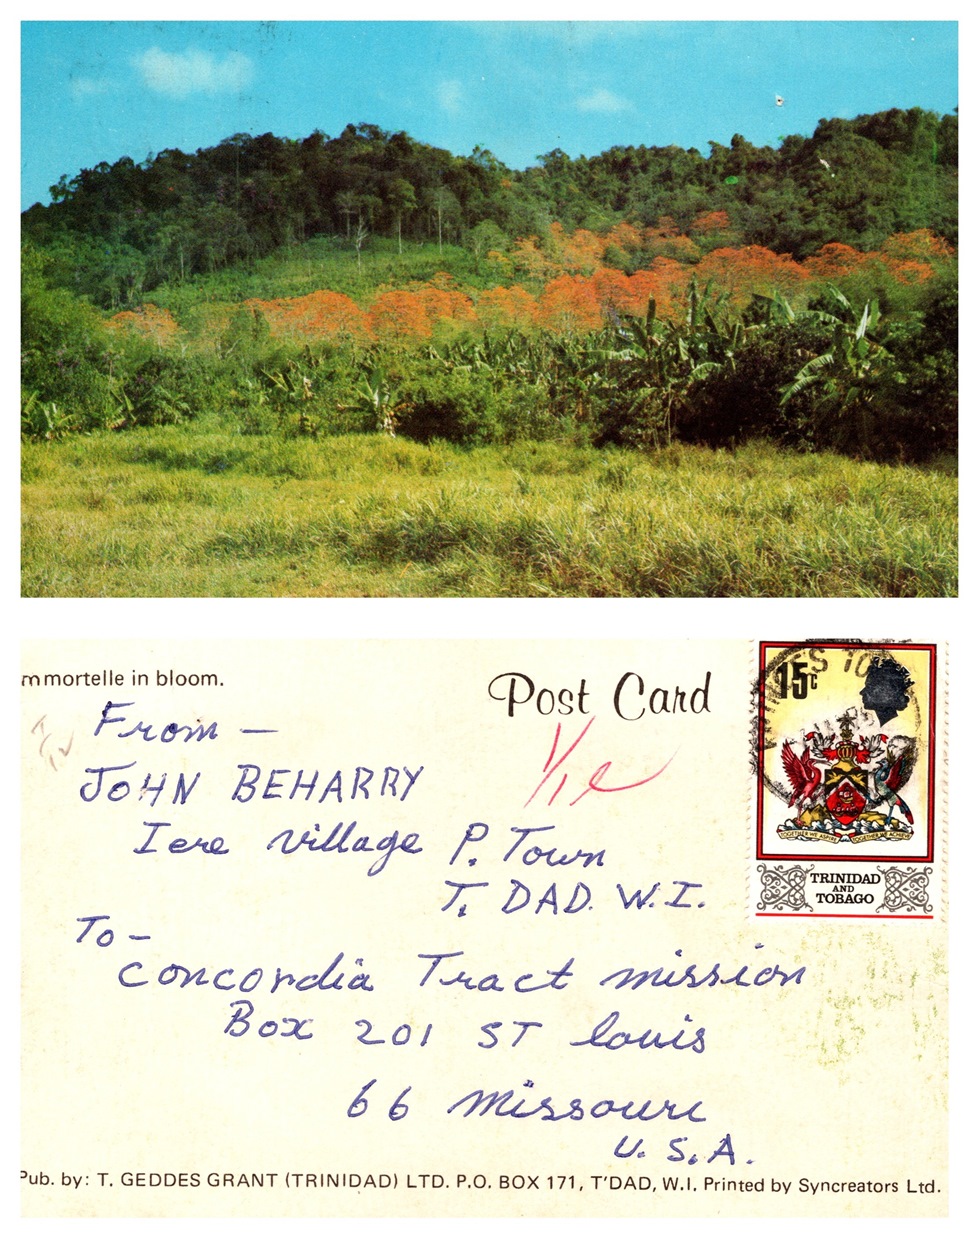 mmortelle in bloom.
Post Card
From -
JOHN BEHARRY
Iere village P. Town
T. DAD. W.I.
To -
concordia Tract mission
Box 201 ST louis
66 missouri
U. S. A.
15c
TOGETHER WE ASPIRE TOGETHER WE ACHIEVE
TRINIDAD
AND
TOBAGO
Pub. by: T. GEDDES GRANT (TRINIDAD) LTD. P.O. BOX 171, T'DAD, W.I. Printed by Syncreators Ltd.